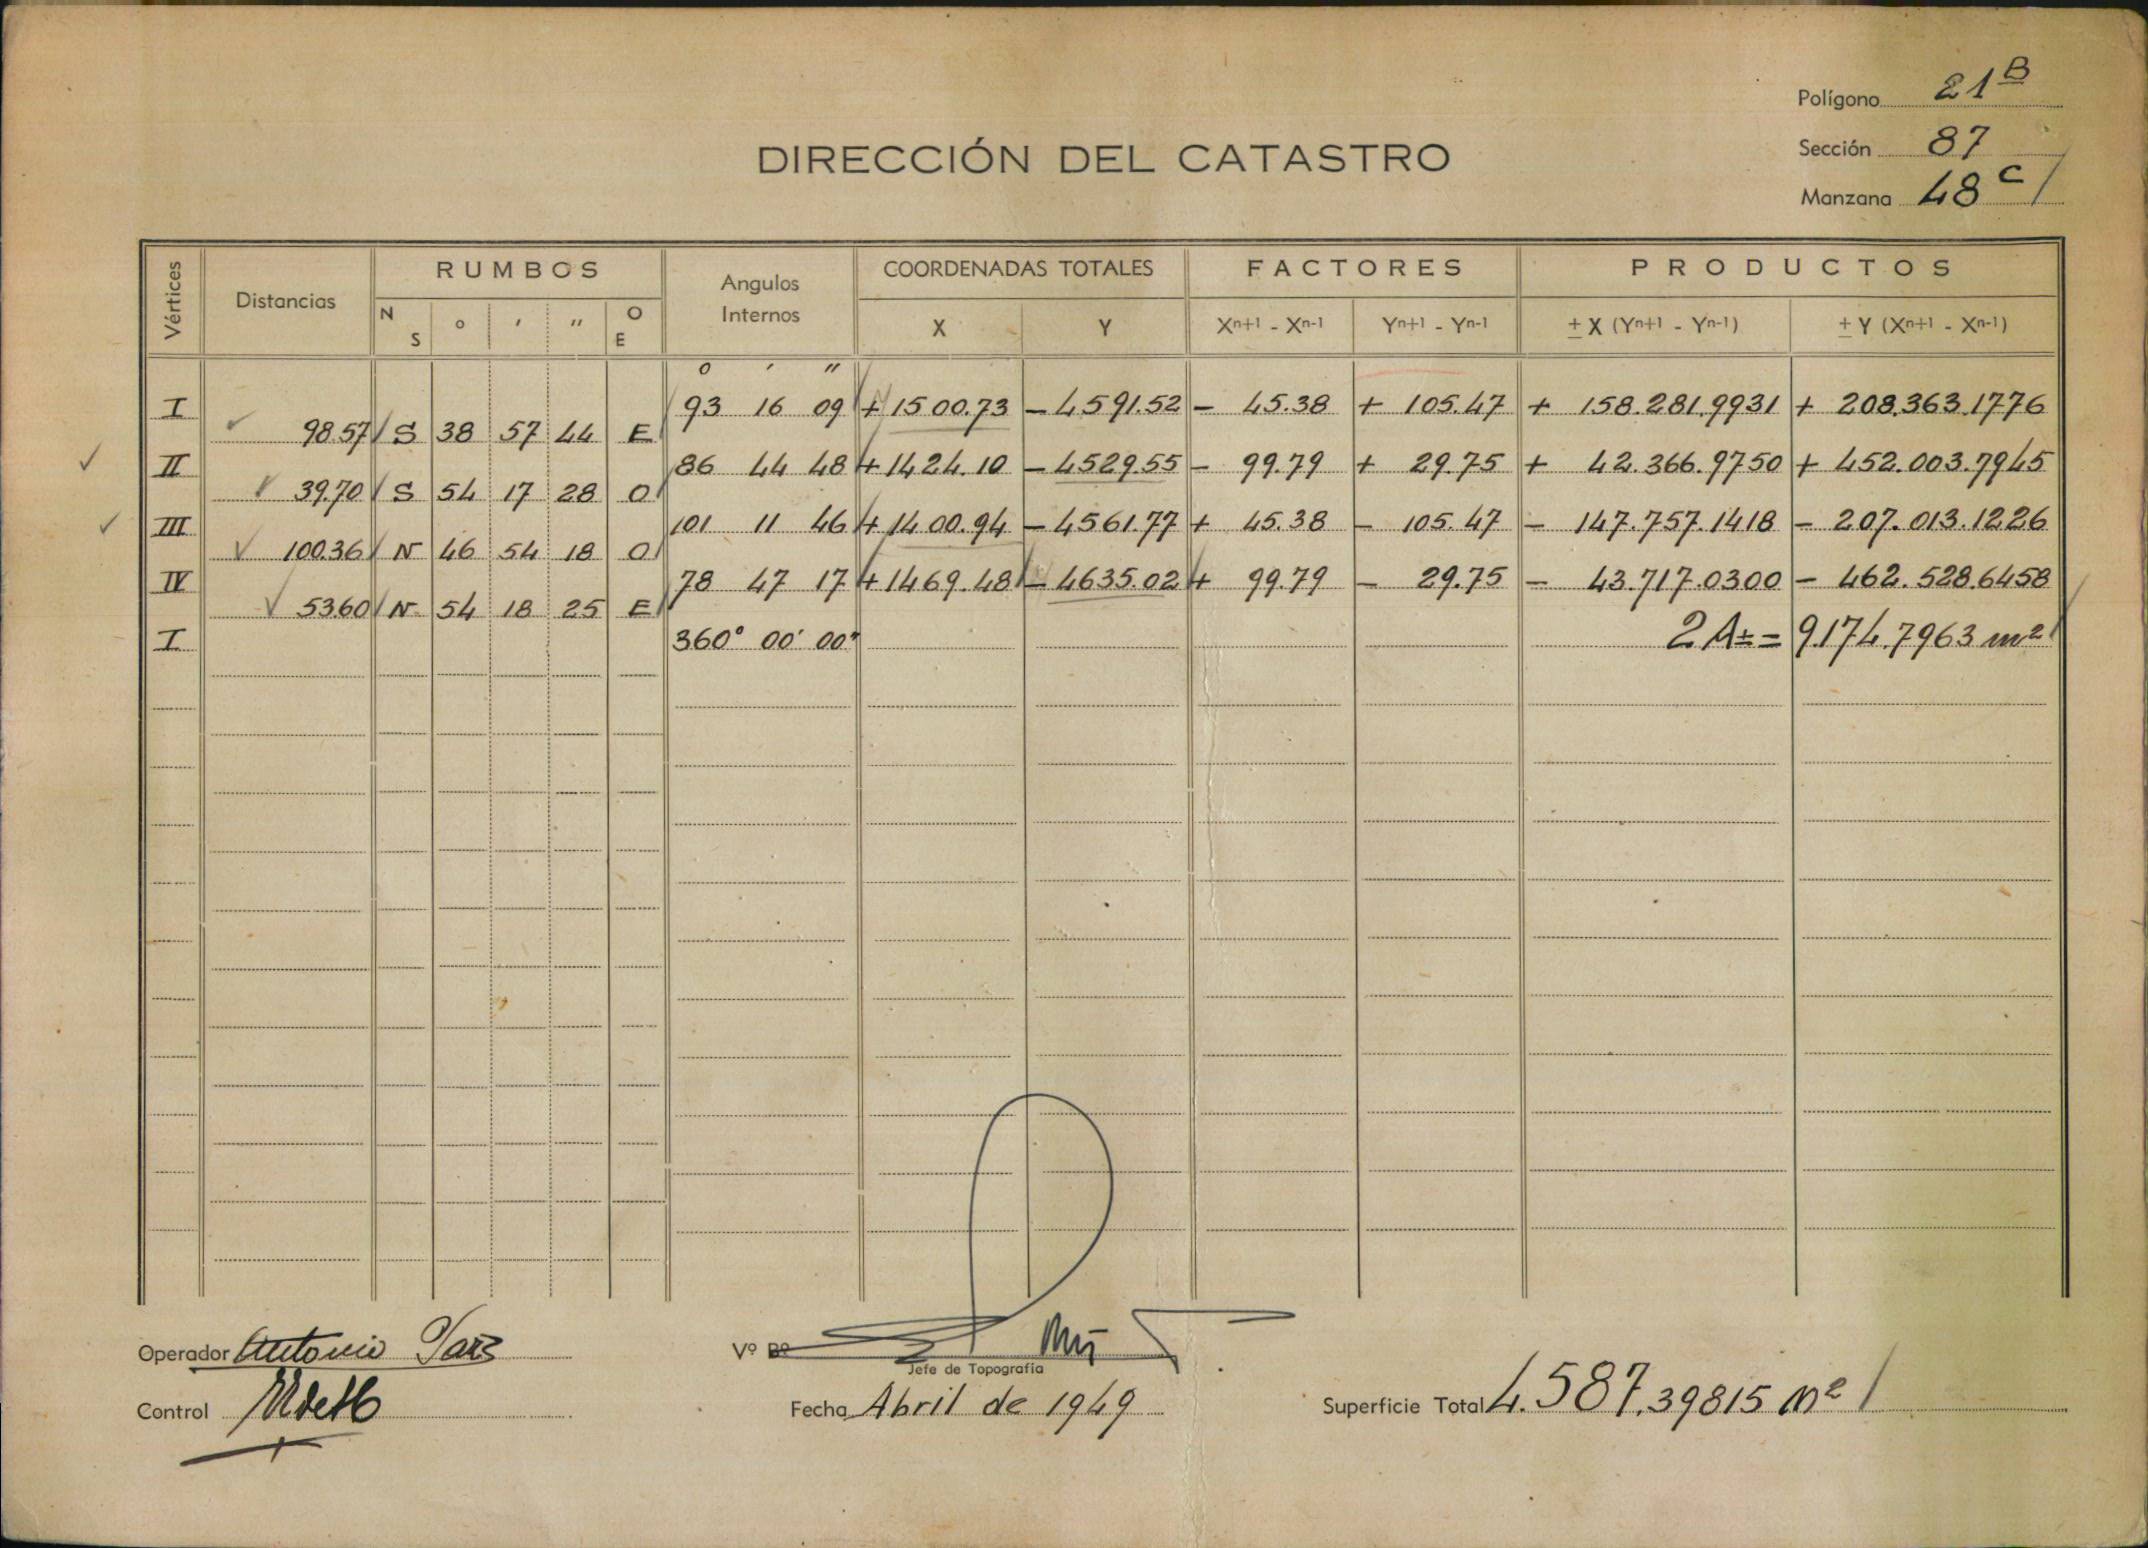 Polígono 21 B
DIRECCIÓN DEL CATASTRO
Sección 87
Manzana 48 C
Vértices Distancias RUMBOS Angulos Internos COORDENADAS TOTALES FACTORES PRODUCTOS
N S ° ' " O E X Y Xn+1 - Xn-1 Yn+1 - Yn-1 ± X (Yn+1 - Yn-1) ± Y (Xn+1 - Xn-1)
° ' "
I 93 16 09 + 1500.73 - 4591.52 - 45.38 + 105.47 + 158.281.9931 + 208.363.1776
98.57 S 38 57 44 E
II 86 44 48 + 1424.10 - 4529.55 - 99.79 + 29.75 + 42.366.9750 + 452.003.7945
39.70 S 54 17 28 O
III 101 11 46 + 1400.94 - 4561.77 + 45.38 - 105.47 - 147.757.1418 - 207.013.1226
100.36 N 46 54 18 O
IV 78 47 17 + 1469.48 - 4635.02 + 99.79 - 29.75 - 43.717.0300 - 462.528.6458
53.60 N 54 18 25 E
I 360° 00' 00" 2A± = 9.174.7963 m²
Operador Antonio
Vº Bº
Jefe de Topografía
Control
Fecha Abril de 1949
Superficie Total 4.587.39815 m²